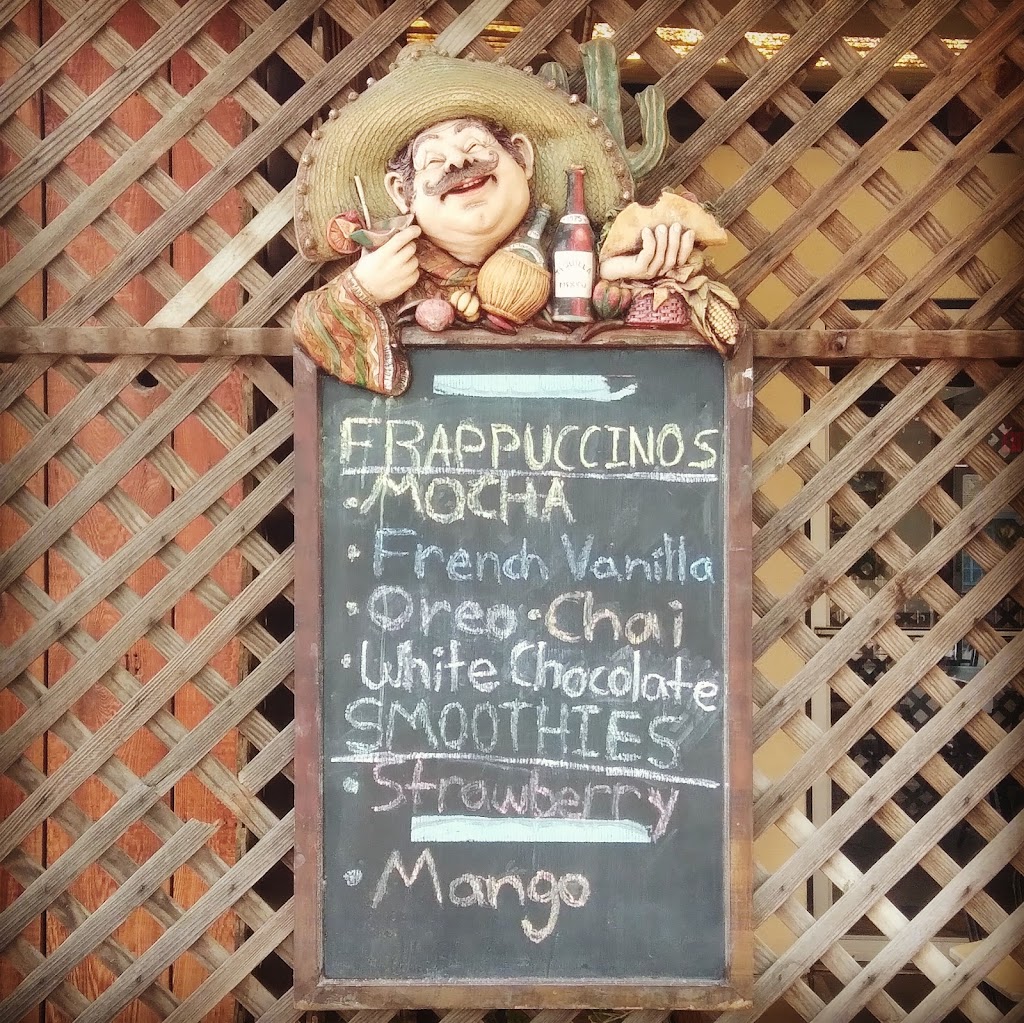 FRAPPUCCINOS
• MOCHA
• French Vanilla
• Oreo • Chai
• White Chocolate
SMOOTHIES
• Strawberry
• Mango